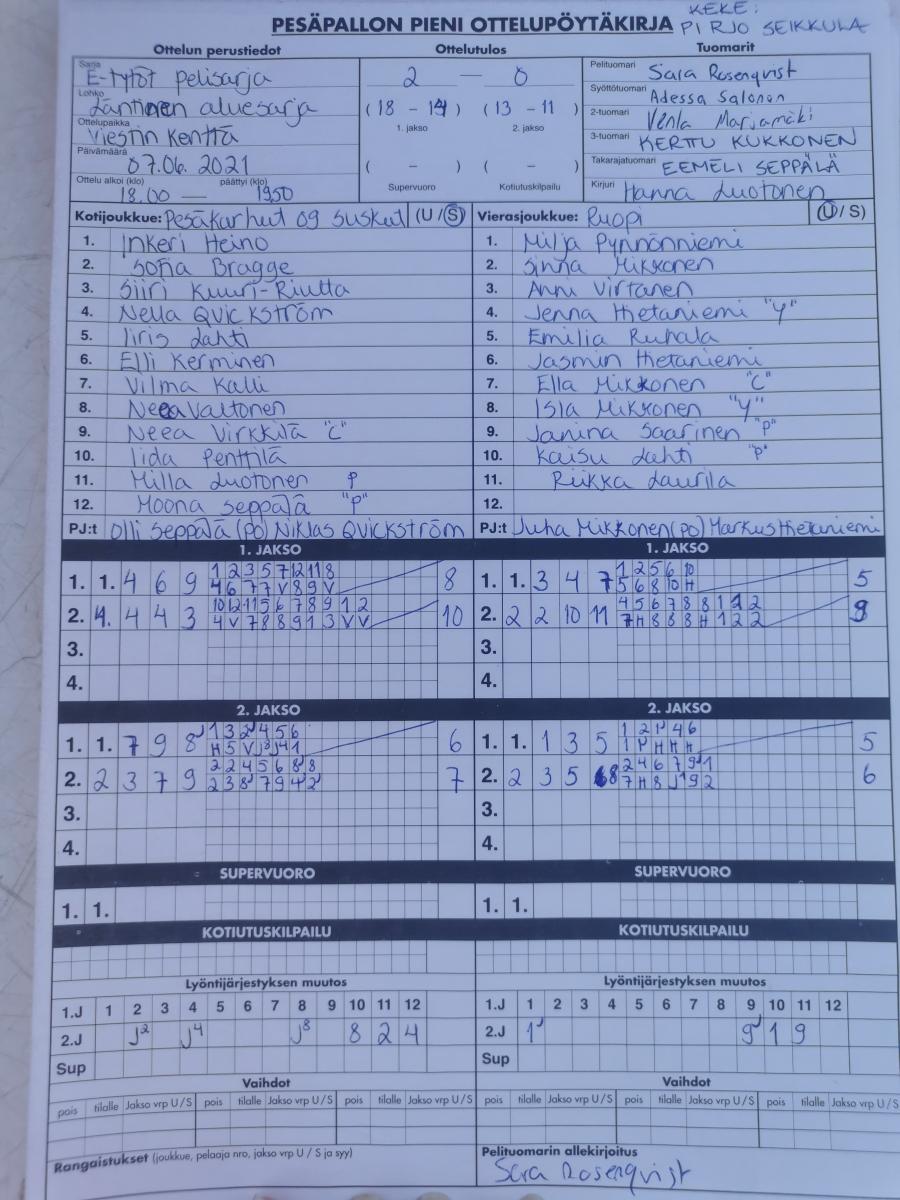 KEKE:
PESÄPALLON PIENI OTTELUPÖYTÄKIRJA PIRJO SEIKKULA
Ottelun perustiedot Ottelutulos Tuomarit
Sarja E-tytöt pelisarja
Lohko Läntinen aluesarja
Ottelupaikka Viestin Kenttä
Päivämäärä 07.06. 2021
Ottelu alkoi (klo) 18.00 — päättyi (klo) 1950
2 — 0
(18 - 14) (13 - 11)
1. jakso 2. jakso
( - ) ( - )
Supervuoro Kotiutuskilpailu
Pelituomari Sara Rosenqvist
Syöttötuomari Adessa Salonen
2-tuomari Venla Marjamäki
3-tuomari KERTTU KUKKONEN
Takarajatuomari EEMELI SEPPÄLÄ
Kirjuri Hanna Luotonen
Kotijoukkue: Pesäkarhut 09 suskut (U/S)
1. Inkeri Heino
2. Sofia Bragge
3. Siiri Kuuri-Riutta
4. Nella Quickström
5. Iiris Lahti
6. Elli Kerminen
7. Vilma Kalli
8. Neea Valtonen
9. Neea Virkkilä "C"
10. Iida Penttilä
11. Milla Luotonen P
12. Moona Seppälä "P"
PJ:t Olli Seppälä (po) Niklas Quickström
Vierasjoukkue: Ruopi (U/S)
1. Milja Pynnönniemi
2. Sinna Mikkonen
3. Anni Virtanen
4. Jenna Hietaniemi "Y"
5. Emilia Ruhala
6. Jasmin Hietaniemi
7. Ella Mikkonen "C"
8. Isla Mikkonen "Y"
9. Janina Saarinen "P"
10. Kaisu Lahti "P"
11. Riikka Laurila
12.
PJ:t Juha Mikkonen (po) Markus Hietaniemi
1. JAKSO
1. 1. 4 6 9 1 2 3 5 7 12 11 8 8
4 6 7 7 V 8 9 V
2. 4. 4 4 3 10 12 11 5 6 7 8 9 1 2 10
4 V 7 8 8 9 1 3 V V
3.
4.
1. JAKSO
1. 1. 3 4 7 1 2 5 6 10 5
5 6 8 10 H
2. 2 2 10 11 4 5 6 7 8 8 1 2 2 9
7 H 8 8 8 H 1 2 2
3.
4.
2. JAKSO
1. 1. 7 9 8J 1 3 2J 4 5 6 6
H 5 V J3 J4 1
2. 2 3 7 9 2 2 4 5 6 8 8 7
2 3 8J 7 9 4 2
3.
4.
2. JAKSO
1. 1. 1 3 5 1 2 1J 4 6 5
1 H H H
2. 2 3 5 8 2 4 6 7 9J 1 6
7 H 8 J1 9 2
3.
4.
SUPERVUORO SUPERVUORO
1. 1. 1. 1.
KOTIUTUSKILPAILU KOTIUTUSKILPAILU
Lyöntijärjestyksen muutos
1.J 1 2 3 4 5 6 7 8 9 10 11 12
2.J J2 J4 J8 8 2 4
Sup
Lyöntijärjestyksen muutos
1.J 1 2 3 4 5 6 7 8 9 10 11 12
2.J 1J 9J 1 9
Sup
Vaihdot Vaihdot
pois tilalle Jakso vrp U/S pois tilalle Jakso vrp U/S pois tilalle Jakso vrp U/S
pois tilalle Jakso vrp U/S pois tilalle Jakso vrp U/S pois tilalle Jakso vrp U/S
Rangaistukset (joukkue, pelaaja nro, jakso vrp U / S ja syy)
Pelituomarin allekirjoitus
Sara Rosenqvist